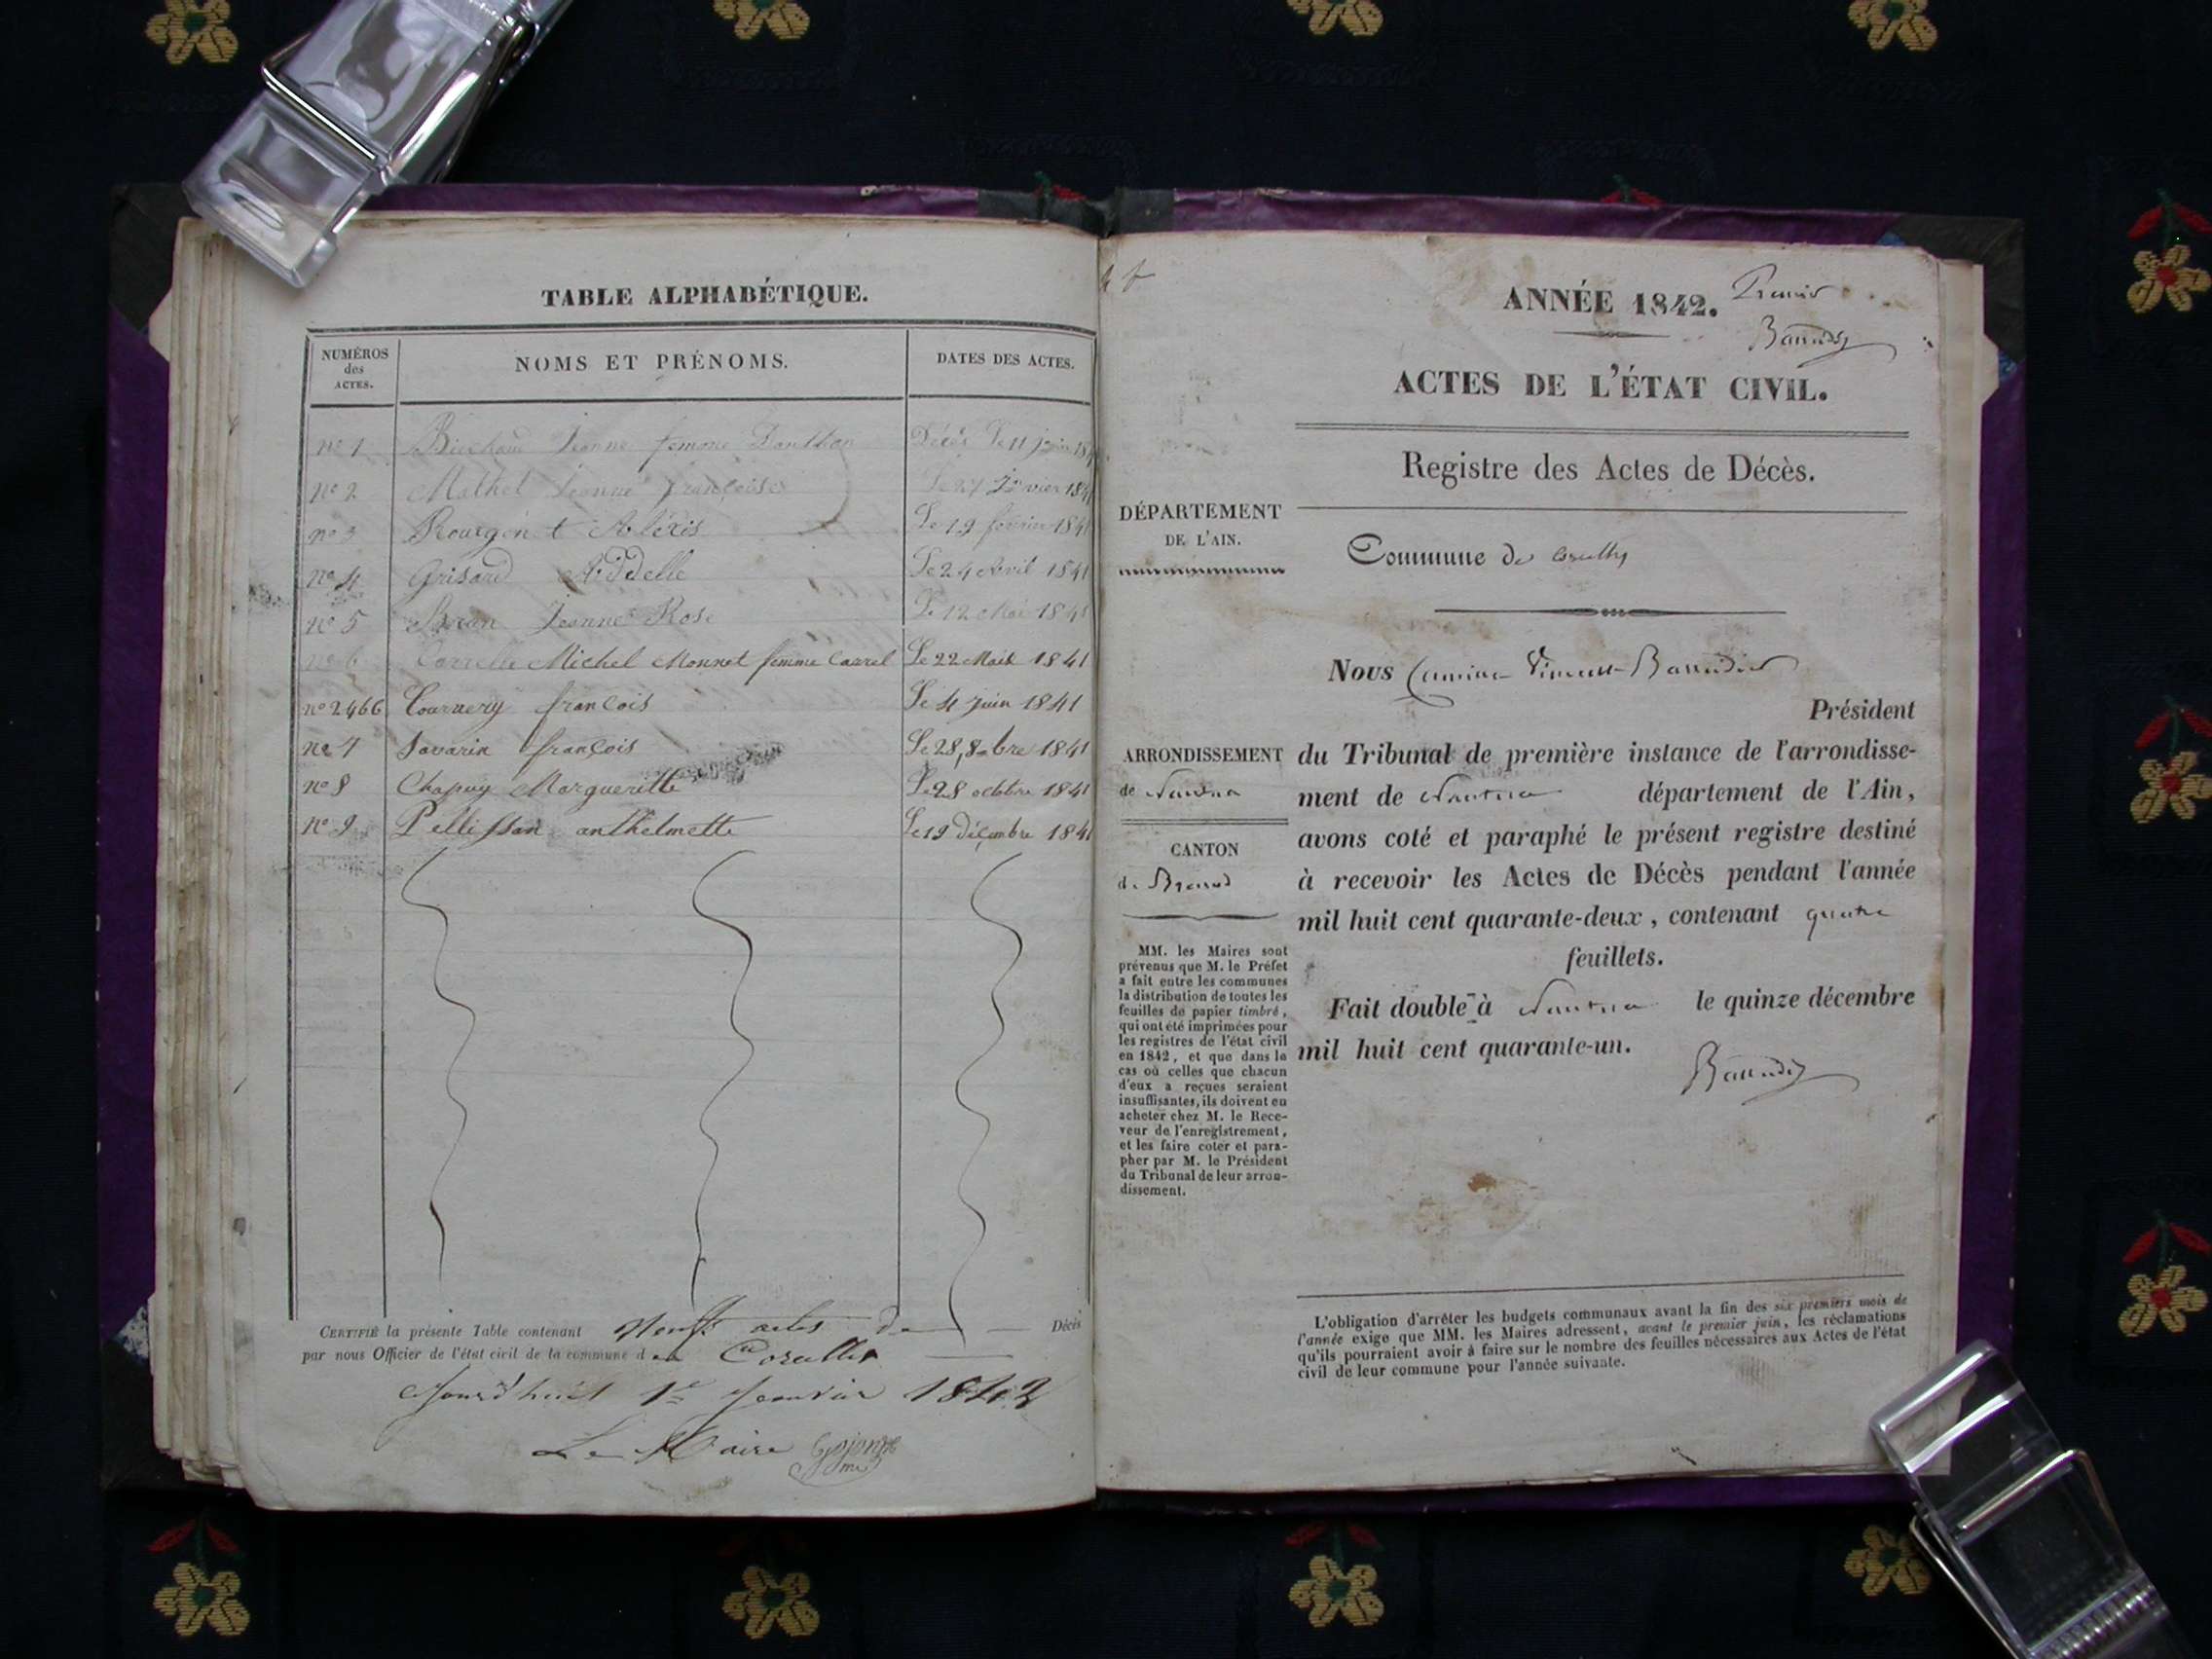 TABLE ALPHABÉTIQUE.
NUMÉROS
des
ACTES.
NOMS ET PRÉNOMS.
DATES DES ACTES.
no 1 Jeanne femme Décès Le 11
no 2 Mathel Jeanne françoise Le 27 Janvier 184
no 3 Alexis Le 19 février 1841
no 4 Grisard Addelle Le 24 Avril 1841
no 5 Jeanne Rose Le 12 Mai 1841
no 6 Michel Monnet femme Carrel Le 22 Mai 1841
no 2466 françois Le 4 juin 1841
no 7 Savarin françois Le 28, 8bre 1841
no 8 Chapuy Margueritte Le 28 octobre 1841
no 9 Pellissan anthelmette Le 19 décembre 1841
CERTIFIÉ la présente Table contenant Neuf actes de Décès
par nous Officier de l'état civil de la commune d
1er Janvier 1842
Le Maire
ANNÉE 1842.
Premier
ACTES DE L'ÉTAT CIVIL.
Registre des Actes de Décès.
DÉPARTEMENT
DE L'AIN.
Commune de
Nous Vincent
Président
ARRONDISSEMENT
de Nantua
CANTON
de Brenod
du Tribunal de première instance de l'arrondisse-
ment de Nantua département de l'Ain,
avons coté et paraphé le présent registre destiné
à recevoir les Actes de Décès pendant l'année
mil huit cent quarante-deux, contenant quatre
feuillets.
Fait double à Nantua le quinze décembre
mil huit cent quarante-un.
MM. les Maires sont
prévenus que M. le Préfet
a fait entre les communes
la distribution de toutes les
feuilles de papier timbré,
qui ont été imprimées pour
les registres de l'état civil
en 1842, et que dans le
cas où celles que chacun
d'eux a reçues seraient
insuffisantes, ils doivent en
acheter chez M. le Rece-
veur de l'enregistrement,
et les faire coter et para-
pher par M. le Président
du Tribunal de leur arron-
dissement.
L'obligation d'arrêter les budgets communaux avant la fin des six premiers mois de
l'année exige que MM. les Maires adressent, avant le premier juin, les réclamations
qu'ils pourraient avoir à faire sur le nombre des feuilles nécessaires aux Actes de l'état
civil de leur commune pour l'année suivante.